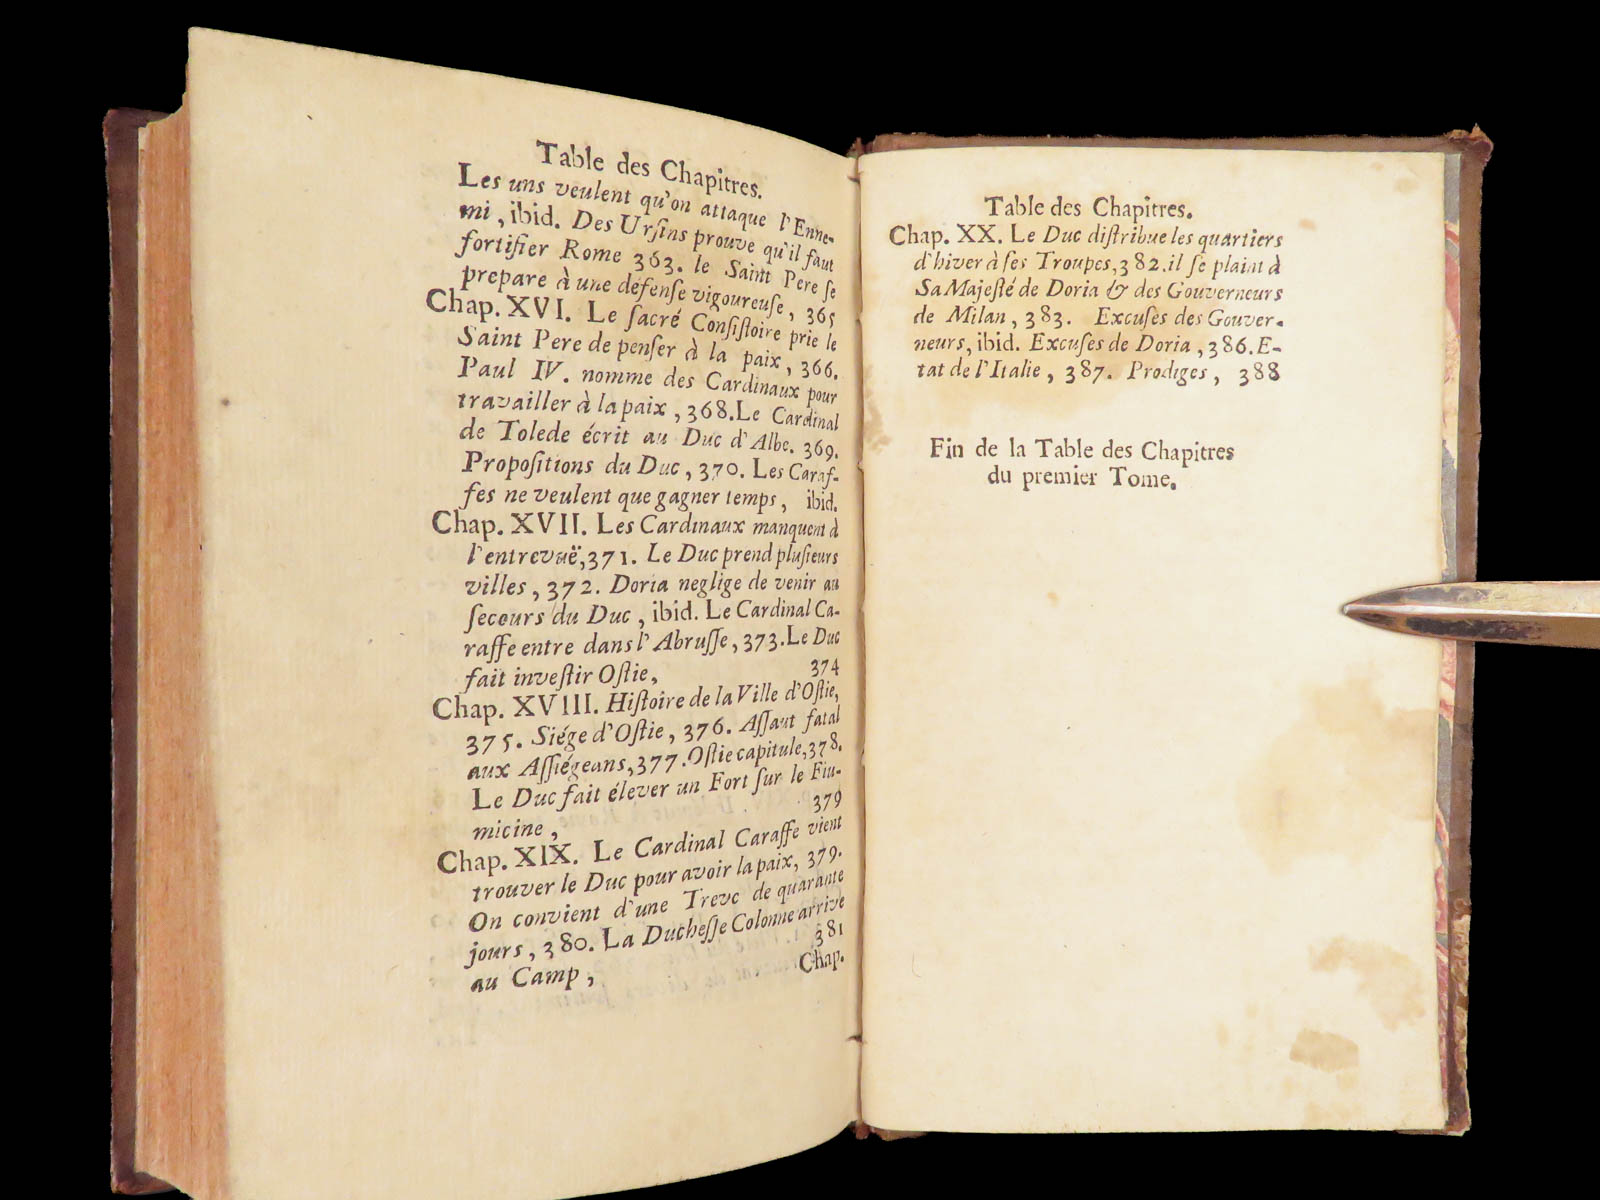 Table des Chapitres.
Les uns veulent qu'on attaque l'Enne-
mi, ibid. Des Urſins prouve qu'il faut
fortifier Rome 363. le Saint Pere ſe
prepare à une défenſe vigoureuſe, 365
Chap. XVI. Le ſacré Conſiſtoire prie le
Saint Pere de penſer à la paix, 366.
Paul IV. nomme des Cardinaux pour
travailler à la paix, 368. Le Cardinal
de Tolede écrit au Duc d'Albe. 369.
Propoſitions du Duc, 370. Les Caraf-
fes ne veulent que gagner temps, ibid.
Chap. XVII. Les Cardinaux manquent à
l'entrevuë, 371. Le Duc prend pluſieurs
villes, 372. Doria neglige de venir au
ſecours du Duc, ibid. Le Cardinal Ca-
raffe entre dans l'Abruſſe, 373. Le Duc
fait inveſtir Oſtie, 374
Chap. XVIII. Hiſtoire de la Ville d'Oſtie,
375. Siége d'Oſtie, 376. Aſſaut fatal
aux Aſſiégeans, 377. Oſtie capitule, 378.
Le Duc fait élever un Fort ſur le Fiu-
micine, 379
Chap. XIX. Le Cardinal Caraffe vient
trouver le Duc pour avoir la paix, 379.
On convient d'une Treve de quarante
jours, 380. La Ducheſſe Colonne arrive
au Camp, 381
Chap.
Table des Chapitres.
Chap. XX. Le Duc diſtribue les quartiers
d'hiver à ſes Troupes, 382. il ſe plaint à
Sa Majeſté de Doria & des Gouverneurs
de Milan, 383. Excuſes des Gouver-
neurs, ibid. Excuſes de Doria, 386. E-
tat de l'Italie, 387. Prodiges, 388
Fin de la Table des Chapitres
du premier Tome.